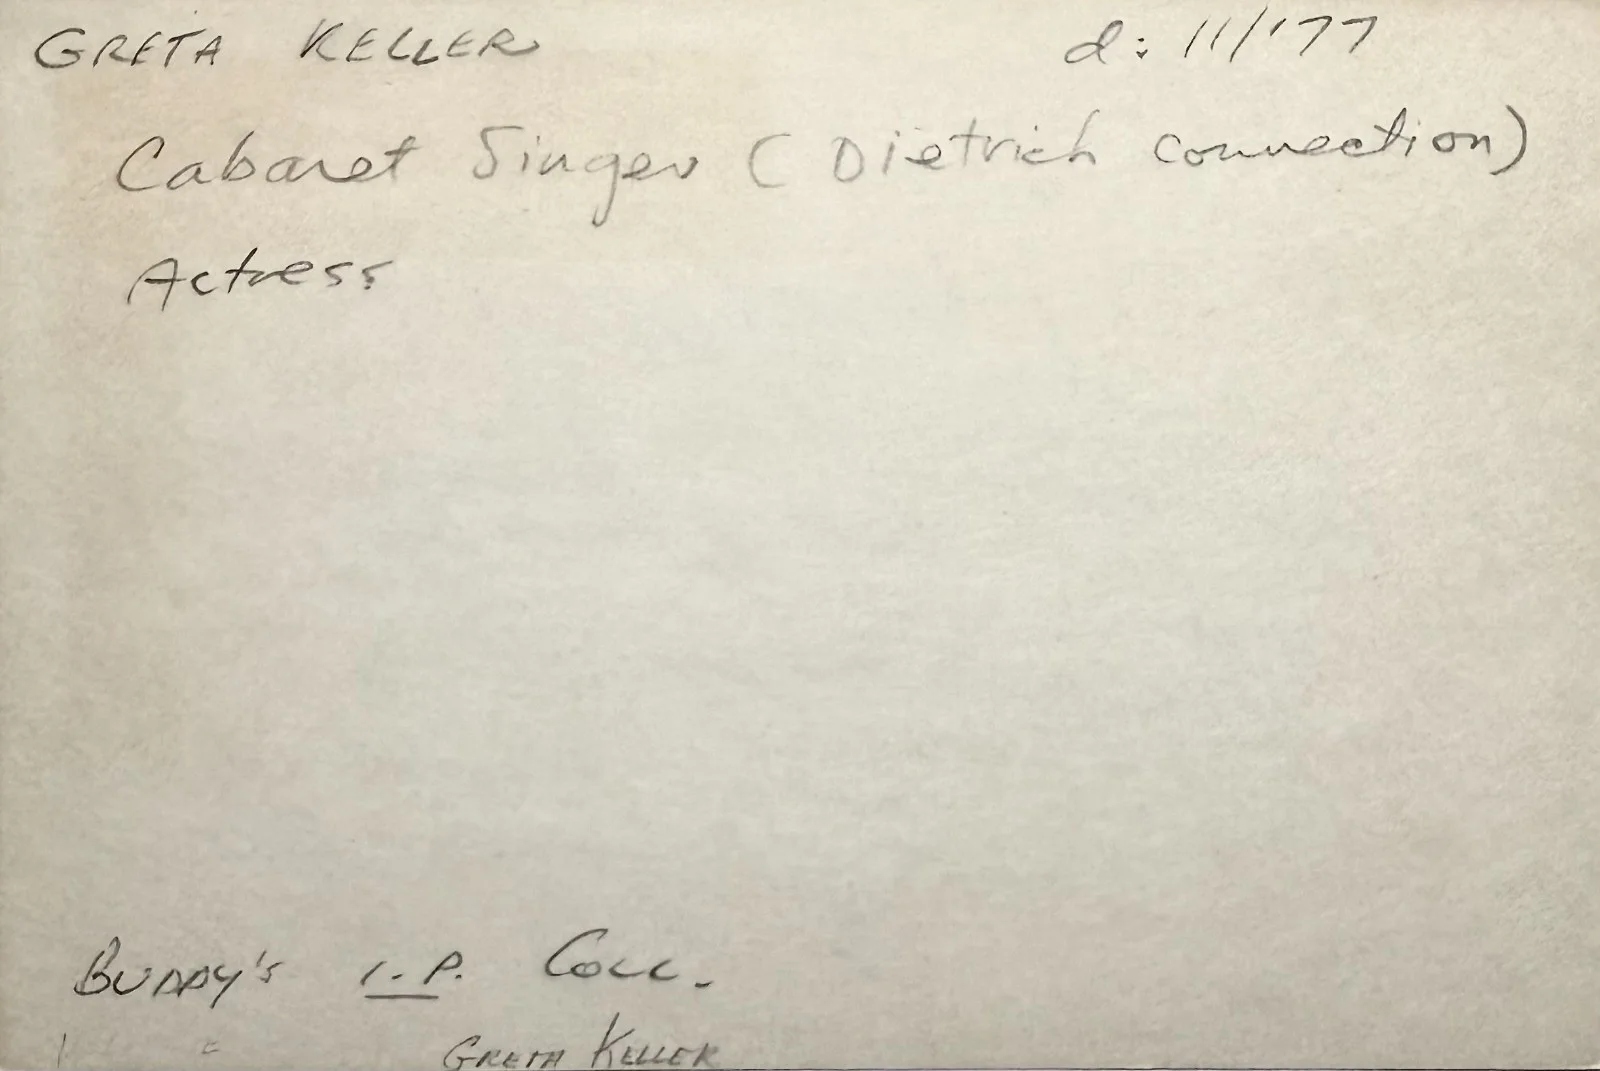 GRETA KELLER d: 11/'77
Cabaret Singer (Dietrich connection)
Actress
BUDDY'S I.P. COLL.
GRETA KELLER